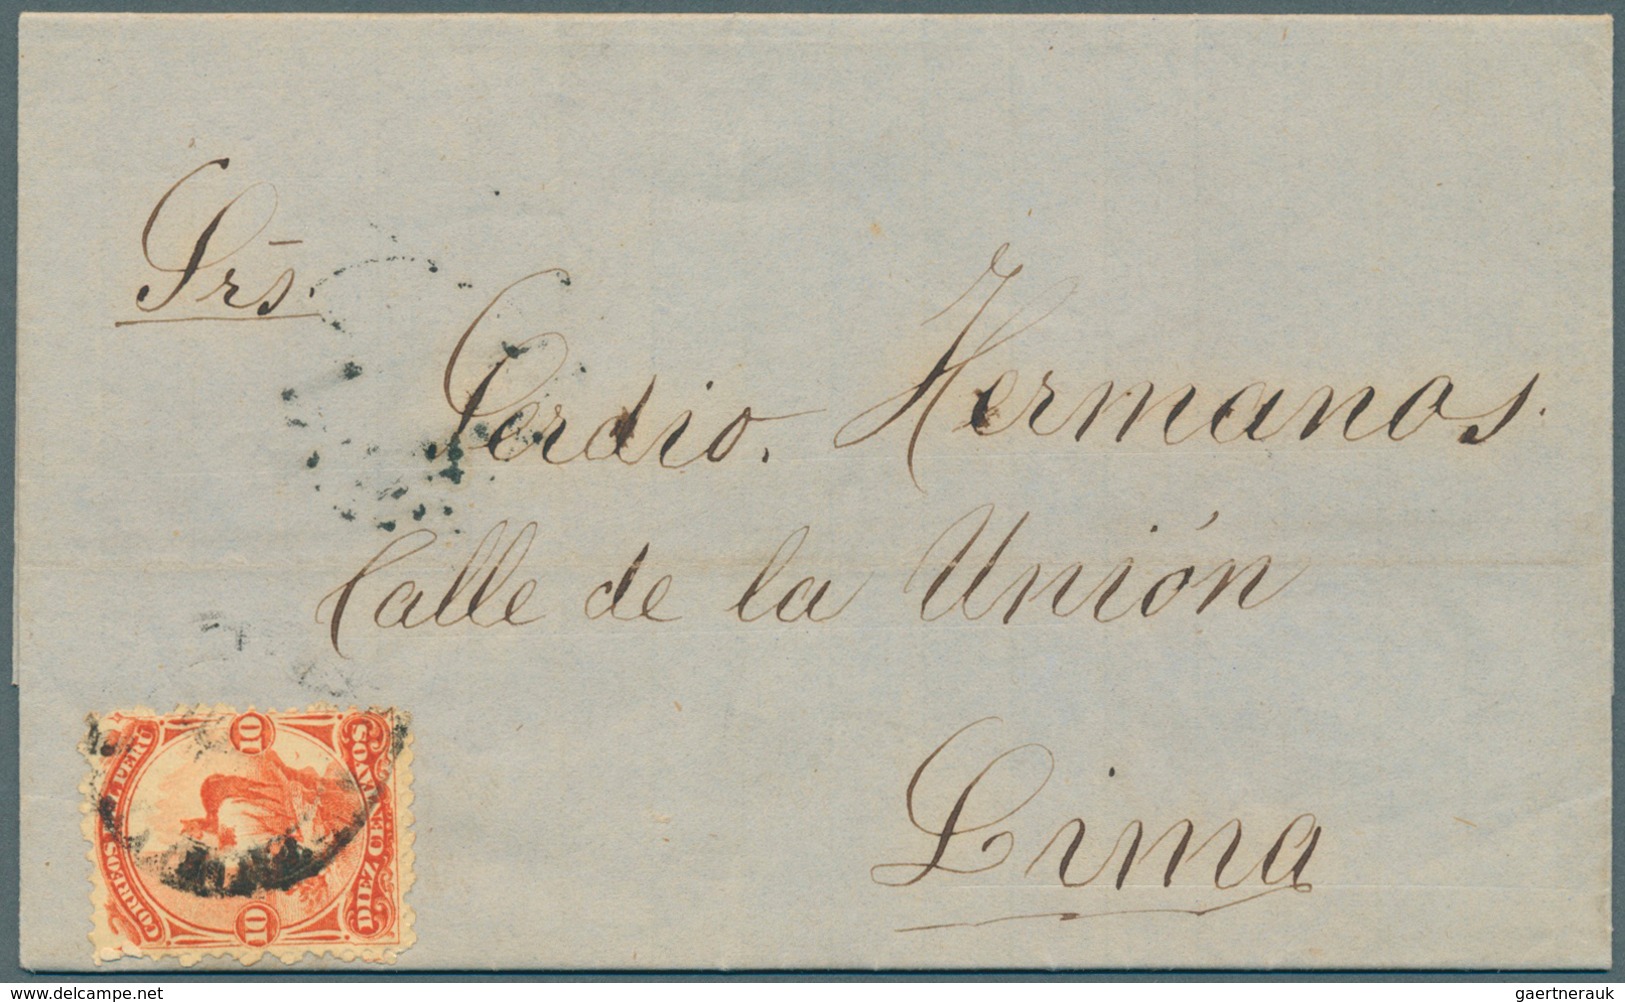 Srs.
Perdio. Hermanos.
Calle de la Unión
Lima
CORREOS DEL PERU
10
10
DIEZ CENTAVOS
delcampe.net
gaertnerauk